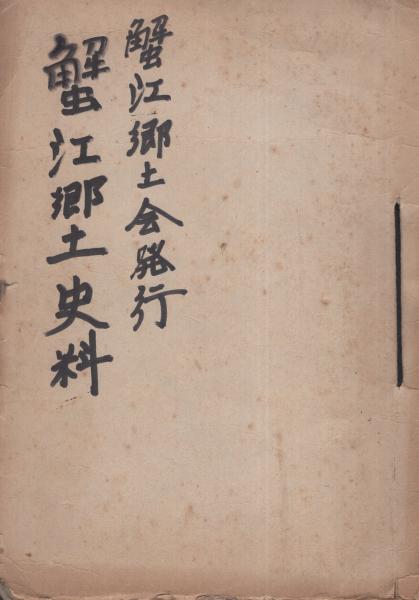 蟹江郷土会発行
蟹江郷土史料